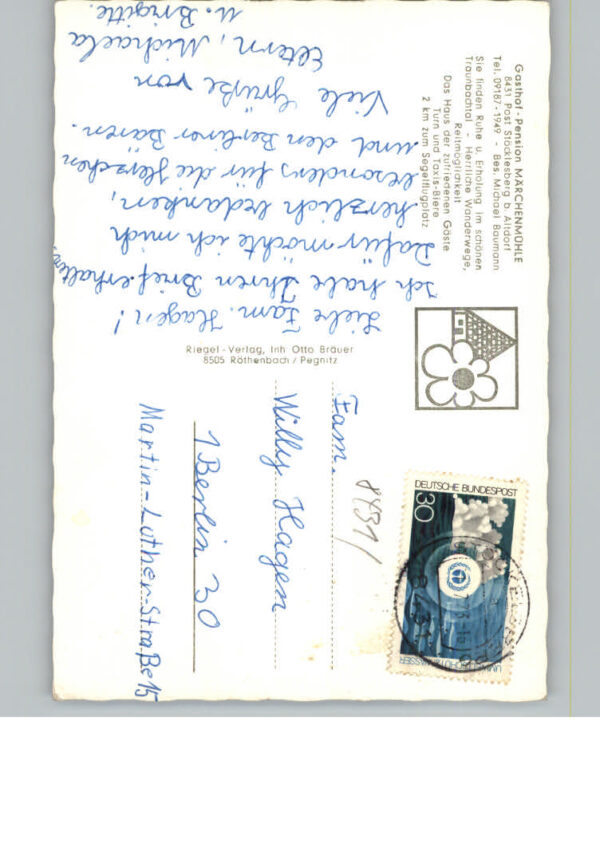 Gasthof - Pension MÄRCHENMÜHLE
8431 Post Stöcklesberg b. Altdorf
Tel. 09187-1949 - Bes. Michael Baumann
Sie finden Ruhe u. Erholung im schönen
Traunbachtal - Herrliche Wanderwege,
Reitmöglichkeit
Das Haus der zufriedenen Gäste
Turn und Taxis-Biere
2 km zum Segelflugplatz
Liebe Fam. Hagen!
Ich habe Ihren Brief erhalten,
Dafür möchte ich mich
herzlich bedanken,
besonders für die Herzchen
und den Berliner Bären.
Viele Grüße von
Eltern, Michaela
u. Brigitte.
Riegel-Verlag, Inh Otto Bräuer
8505 Röthenbach / Pegnitz
DEUTSCHE BUNDESPOST
30
8431
Fam.
Willy Hagen
1 Berlin 30
Martin-Luther-Straße 15